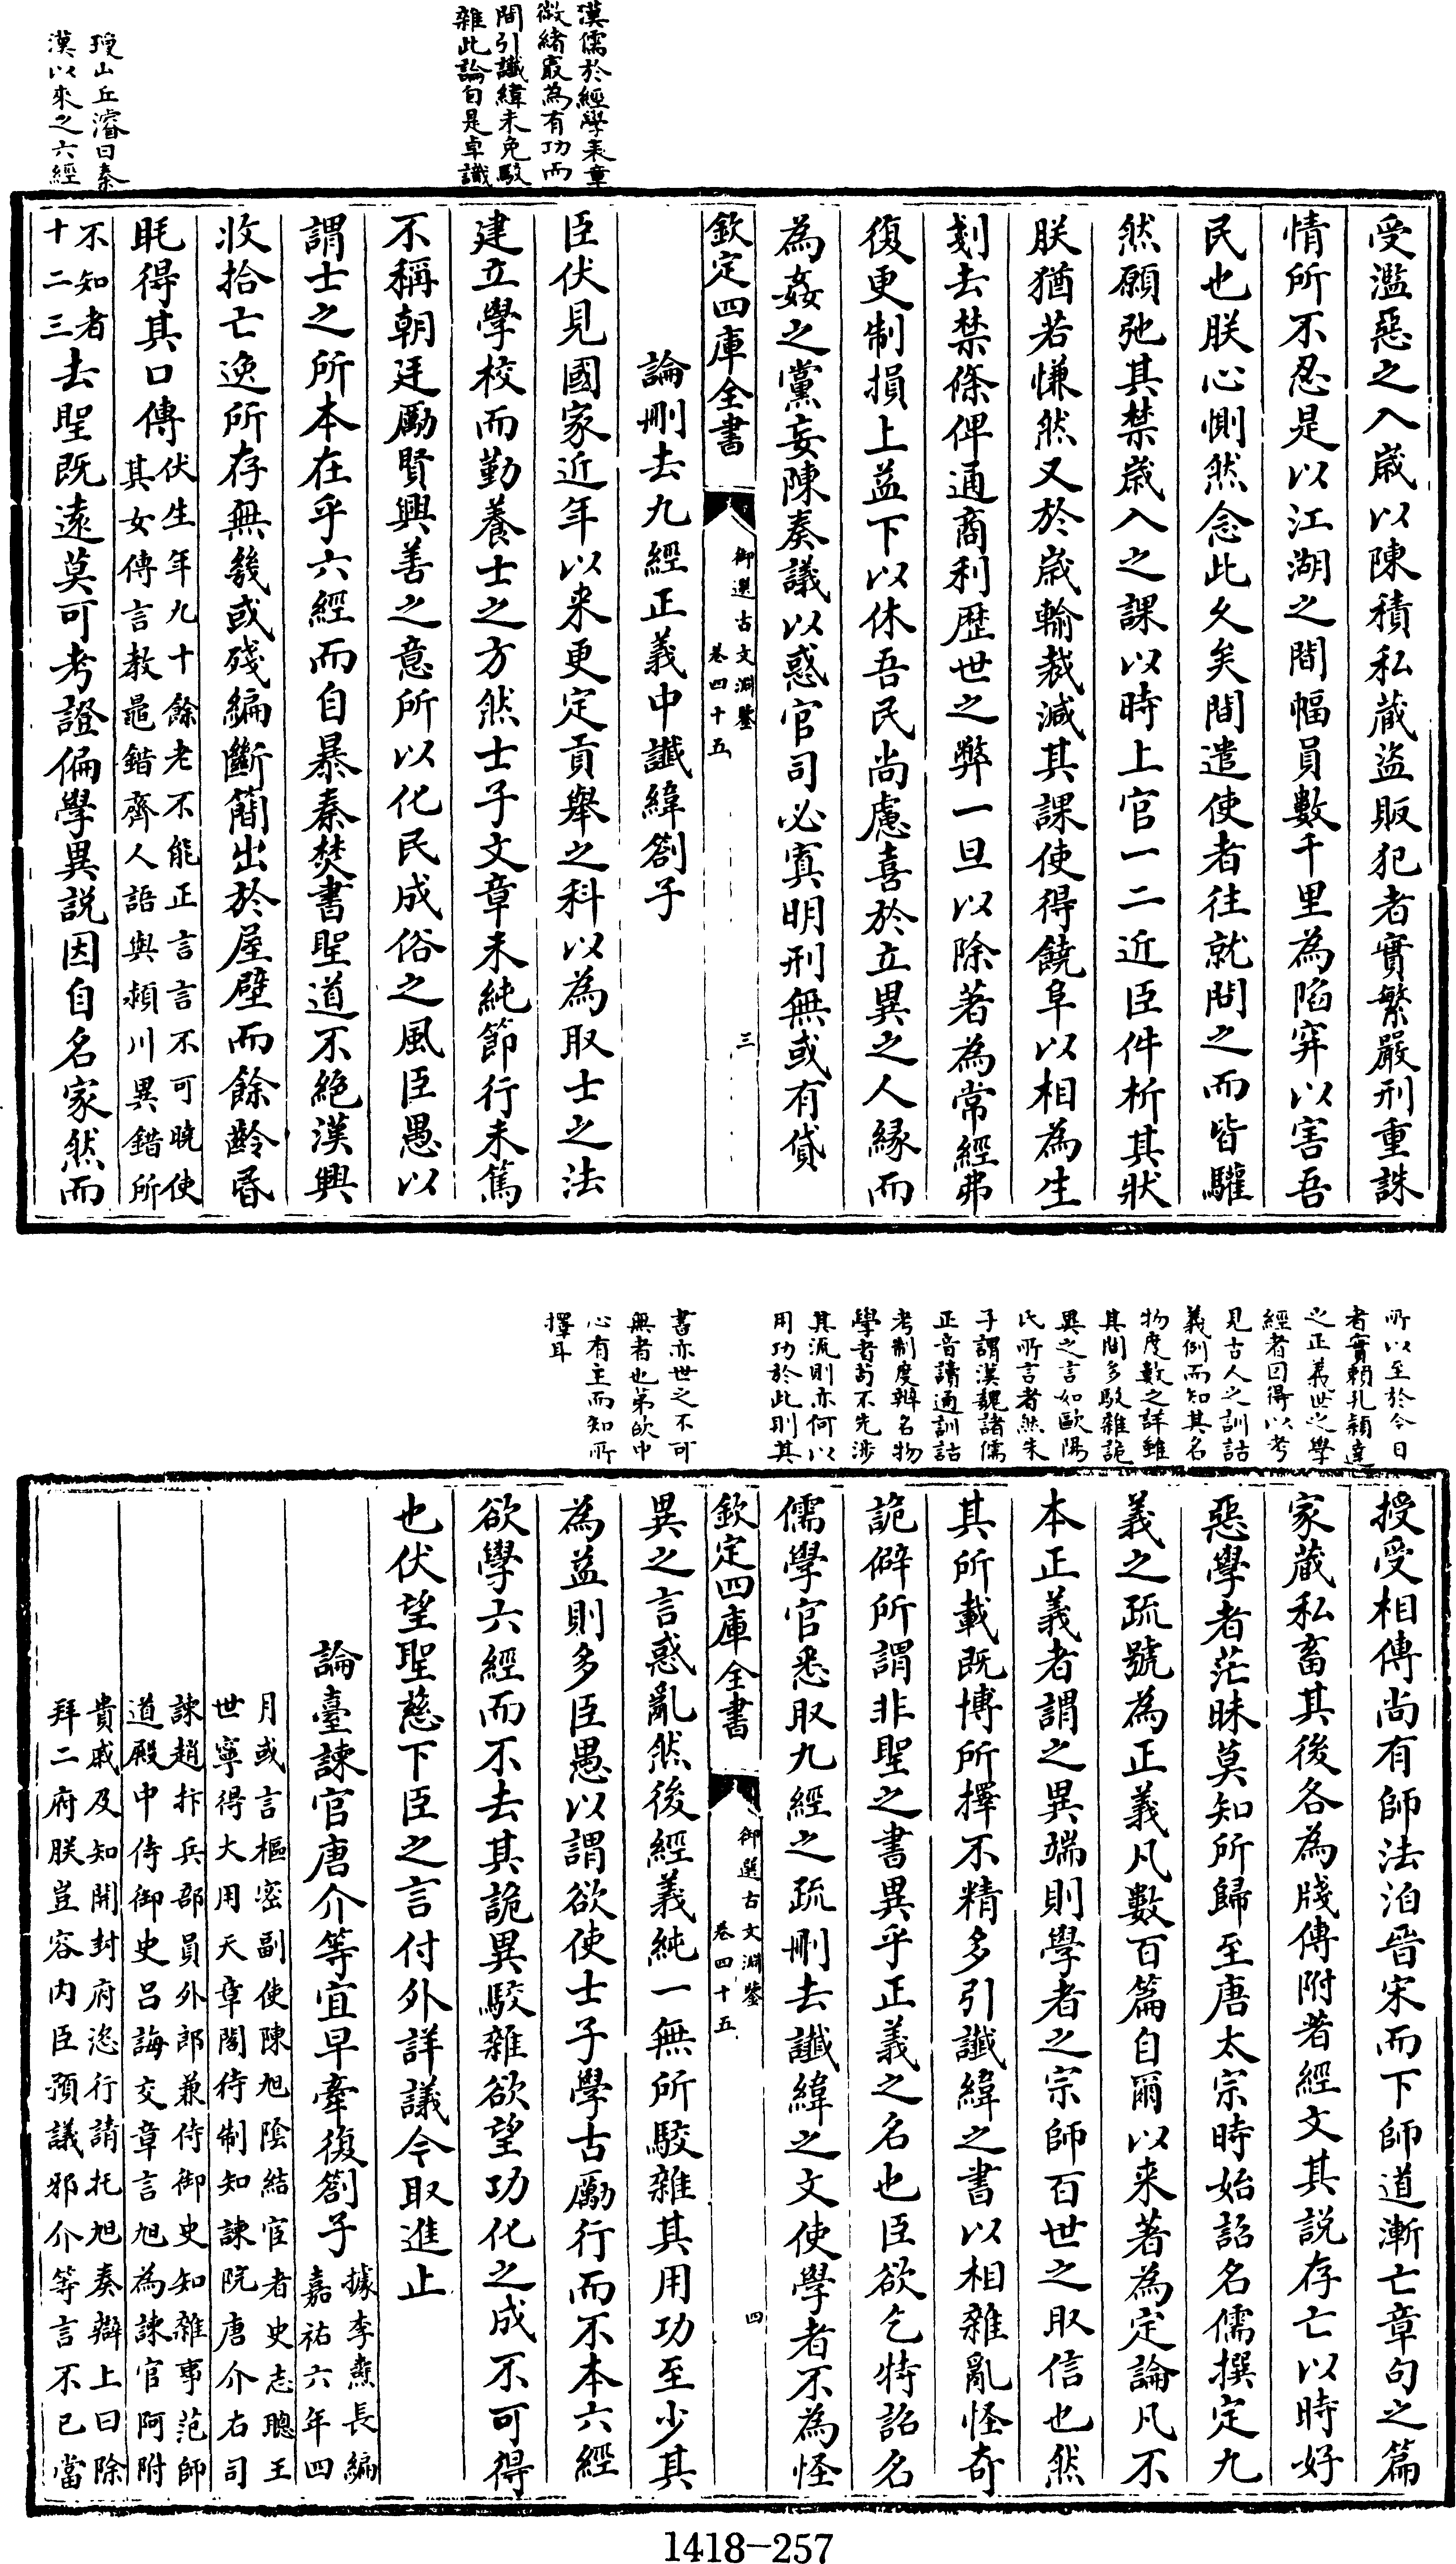 受濫惡之入歲以陳積私蔵盜販犯者實繁嚴刑重誅
情所不忍是以江湖之間幅員數千里為陷穽以害吾
民也朕心惻然念此乆矣間遣使者往就問之而皆驩
然願弛其禁歲入之課以時上官一二近臣件析其狀
朕猶若慊然又於歲輸裁減其課使得饒阜以相為生
剗去禁條俾通商利歴世之弊一旦以除著為常經弗
復更制損上益下以休吾民尚慮喜於立異之人緣而
為姦之黨妄陳奏議以惑官司必寘明刑無或有貸
欽定四庫全書
御選古文淵鑒
卷四十五
三
論刪去九經正義中讖緯劄子
臣伏見國家近年以来更定貢舉之科以為取士之法
建立學校而勤養士之方然士子文章未純節行未篤
不稱朝廷勵賢興善之意所以化民成俗之風臣愚以
謂士之所本在乎六經而自暴秦焚書聖道不絕漢興
收拾亡逸所存無幾或殘編斷簡出於屋壁而餘齡昏
眊得其口傳
伏生年九十餘老不能正言言不可曉使
其女傳言教鼂錯齊人語與潁川異錯所
不知者
十二三
去聖既遠莫可考證偏學異説因自名家然而
漢儒於經學表章
微緒㝡為有功而
間引讖緯未免駁
雜此論自是卓識
瓊山丘濬曰秦
漢以來之六經
所以至於今日
者實賴孔穎達
之正義世之學
經者因得以考
見古人之訓詁
義例而知其名
物度數之詳雖
其間多駁雜詭
異之言如歐陽
氏所言者然朱
子謂漢魏諸儒
正音讀通訓詁
考制度辨名物
學者茍不先涉
其流則亦何以
用功於此則其
書亦世之不可
無者也第欲中
心有主而知所
擇耳
授受相傳尚有師法洎晉宋而下師道漸亡章句之篇
家蔵私畜其後各為牋傳附著經文其説存亡以時好
惡學者茫昧莫知所歸至唐太宗時始詔名儒撰定九
義之疏號為正義凡數百篇自爾以来著為定論凡不
本正義者謂之異端則學者之宗師百世之取信也然
其所載既博所擇不精多引讖緯之書以相雜亂怪奇
詭僻所謂非聖之書異乎正義之名也臣欲乞特詔名
儒學官悉取九經之疏刪去讖緯之文使學者不為怪
欽定四庫全書
御選古文淵鑒
卷四十五
四
異之言惑亂然後經義純一無所駁雜其用功至少其
為益則多臣愚以謂欲使士子學古勵行而不本六經
欲學六經而不去其詭異駁雜欲望功化之成不可得
也伏望聖慈下臣之言付外詳議今取進止
論臺諫官唐介等宜早牽復劄子
據李燾長編
嘉祐六年四
月或言樞密副使陳旭陰結宦者史志聰王
世寧得大用天章閣待制知諫院唐介右司
諫趙抃兵部員外郎兼侍御史知雜事范師
道殿中侍御史吕誨交章言旭為諫官阿附
貴戚及知開封府恣行請托旭奏辯上曰除
拜二府朕豈容内臣預議邪介等言不已當
1418-257